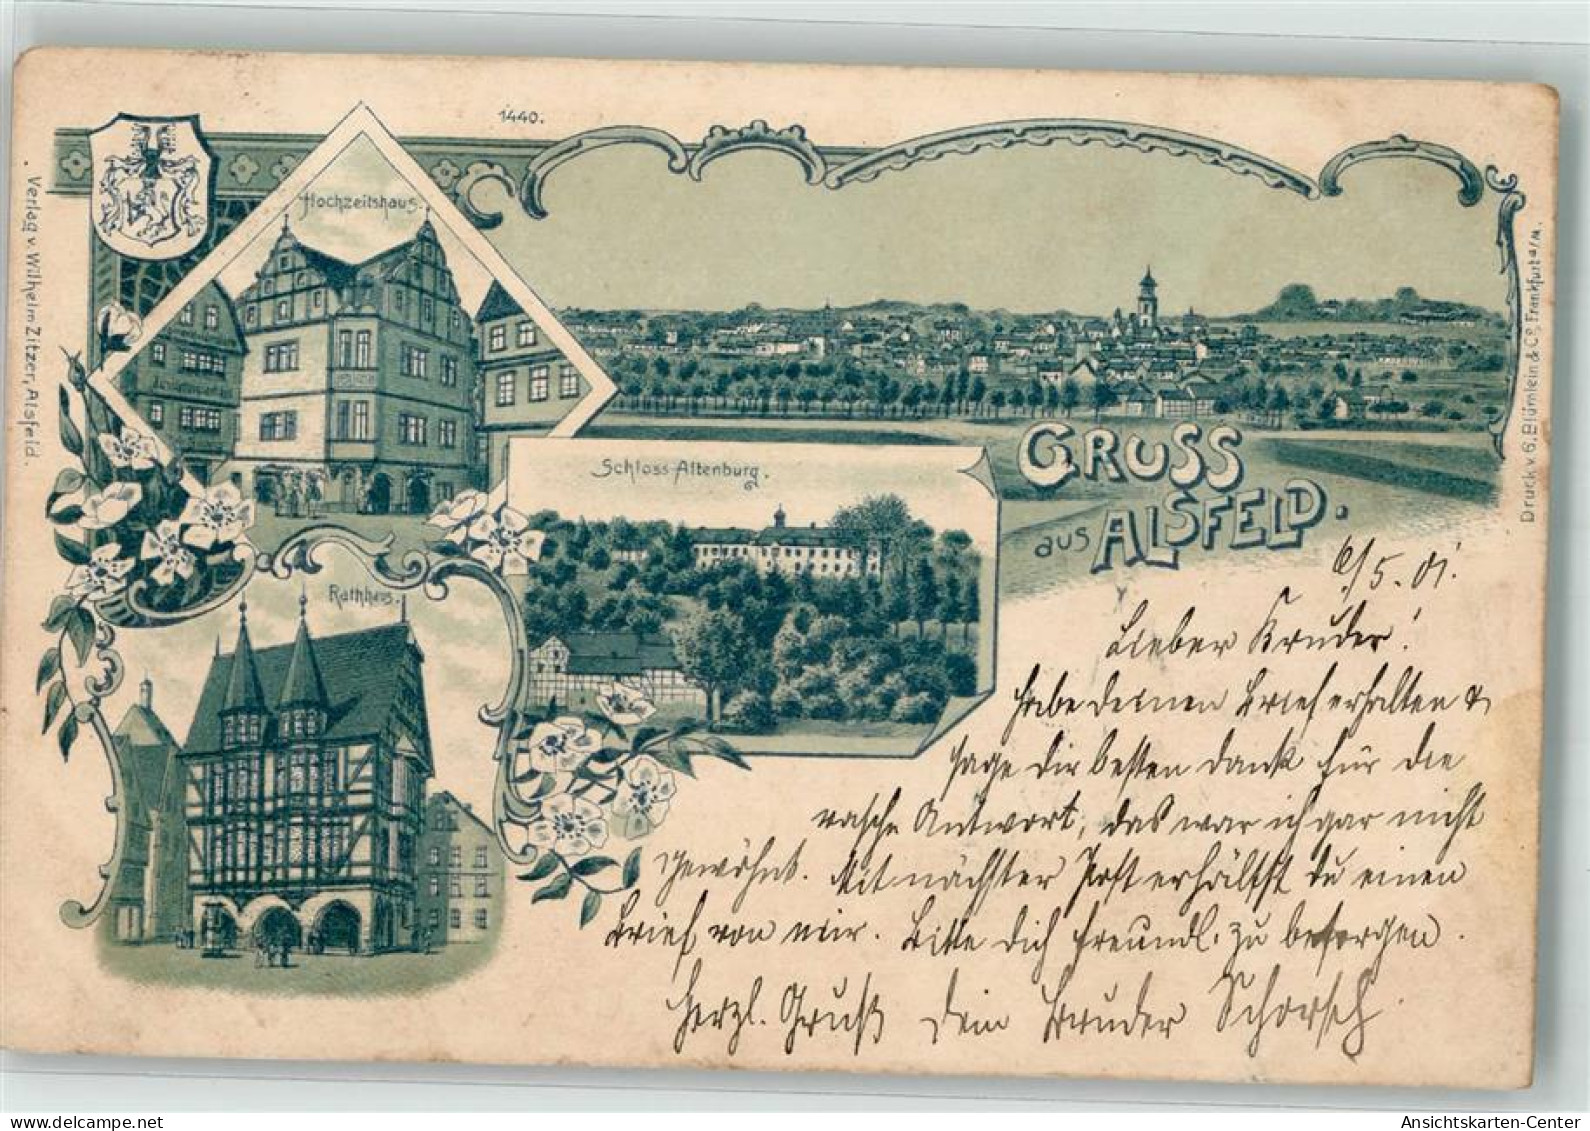 1440.
Hochzeitshaus.
Verlag v. Wilhelm Zitzer, Alsfeld.
Druck v. G. Blümlein & Co. Frankfurt a/M.
Schloss Altenburg.
GRUSS
aus ALSFELD.
Rathhaus.
6/5.01.
Lieber Bruder!
Habe deinen Brief erhalten &
sage dir besten Dank für die
rasche Antwort, das war ich gar nicht
gewöhnt. Mit nächster Post erhältst du einen
Brief von mir. Bitte dich freundl. zu besorgen.
Herzl. Gruß Dein Bruder Schorsch
Ansichtskarten-Center